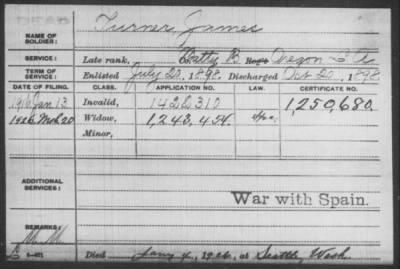 DEAD
NAME OF SOLDIER: Turner, James
SERVICE: Late rank, Batty B Reg't Oregon L A
TERM OF SERVICE: Enlisted July 20, 1898, Discharged Oct 20, 1898
DATE OF FILING. CLASS. APPLICATION NO. LAW. CERTIFICATE NO.
1916 Jan 13 Invalid, 1422310 1,250,680.
1926 Mch 20 Widow, 1,243,454.
Minor,
ADDITIONAL SERVICES:
War with Spain.
REMARKS:
Died Jany 4, 1926, at Seattle, Wash.